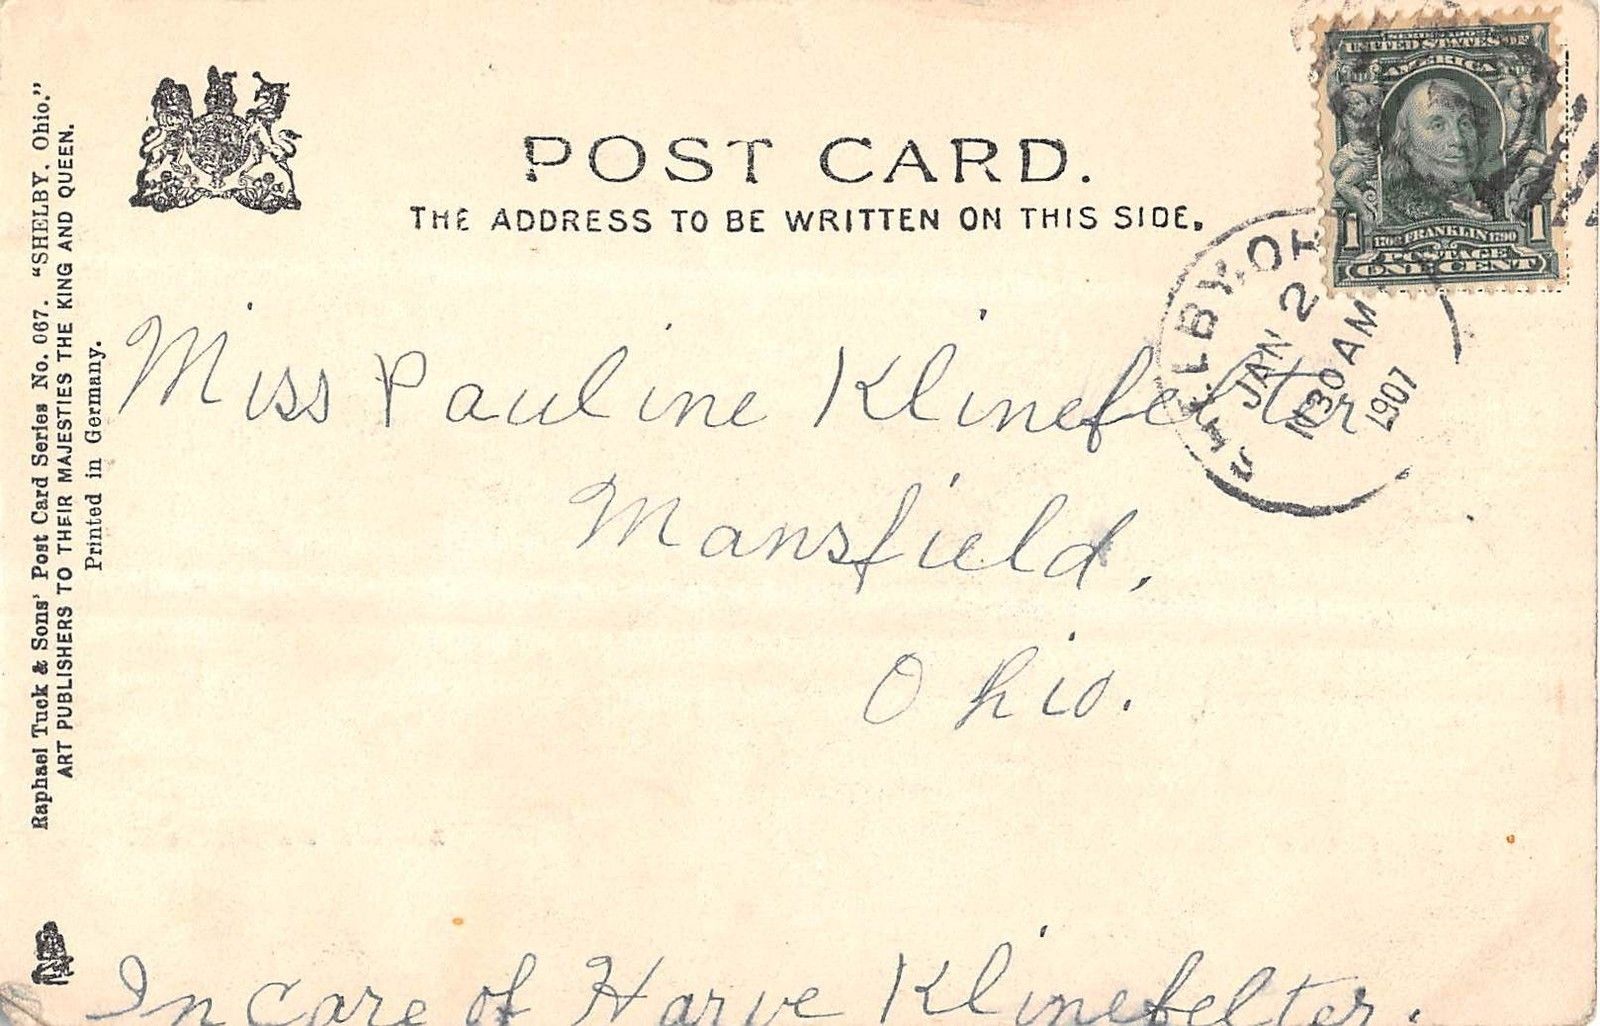 Raphael Tuck & Sons' Post Card Series No. 067. "SHELBY. Ohio."
ART PUBLISHERS TO THEIR MAJESTIES THE KING AND QUEEN.
Printed in Germany.
POST CARD.
THE ADDRESS TO BE WRITTEN ON THIS SIDE.
UNITED STATES OF
AMERICA
1 1706 FRANKLIN 1790 1
POSTAGE
ONE CENT
ELBY.O
JAN 2
1130 AM
1907
Miss Pauline Klinefelter
Mansfield,
Ohio.
In care of Harve Klinefelter.